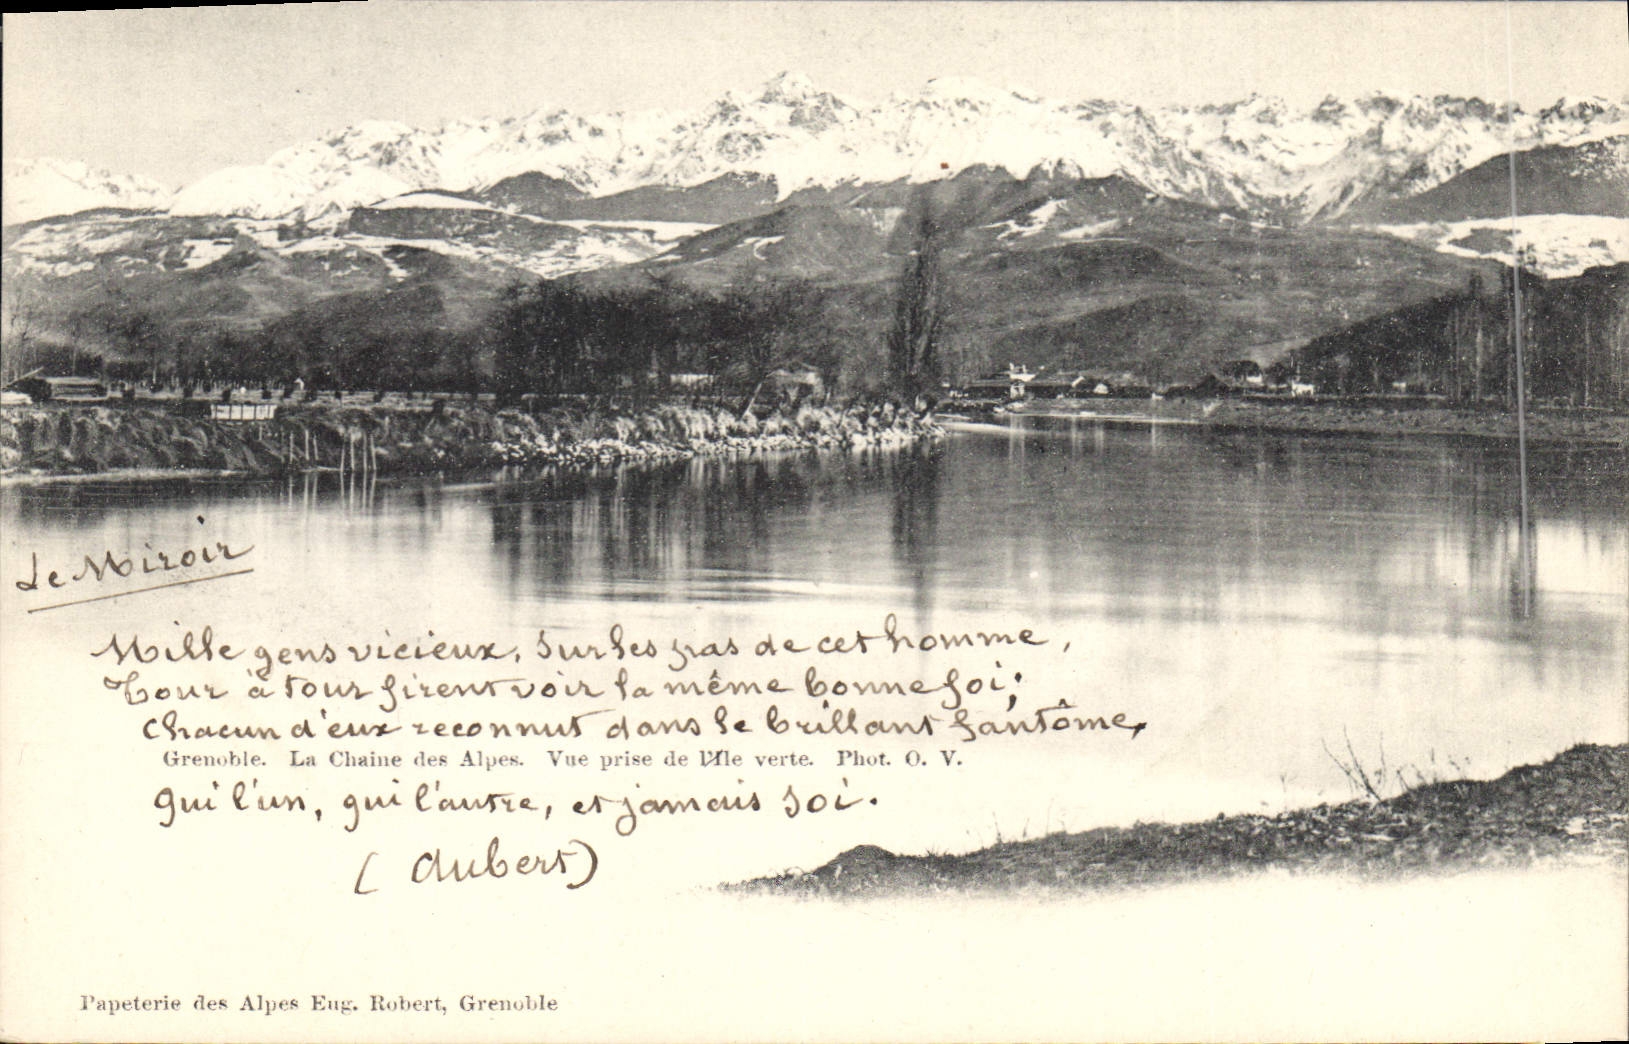 Le Miroir
Mille gens vicieux, sur les pas de cet homme,
Tour à tour firent voir la même bonne foi;
Chacun d'eux reconnut dans le brillant fantôme,
Grenoble. La Chaîne des Alpes. Vue prise de l'Ile verte. Phot. O. V.
Qui l'un, qui l'autre, et jamais soi.
(Aubert)
Papeterie des Alpes Eug. Robert, Grenoble